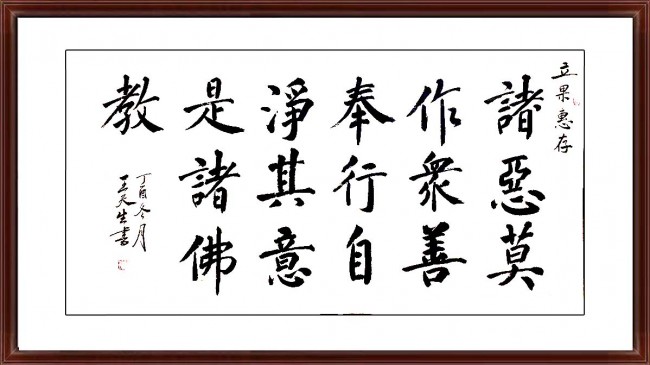 立果惠存
諸惡莫
作衆善
奉行自
淨其意
是諸佛
教
丁酉冬月
王天生書